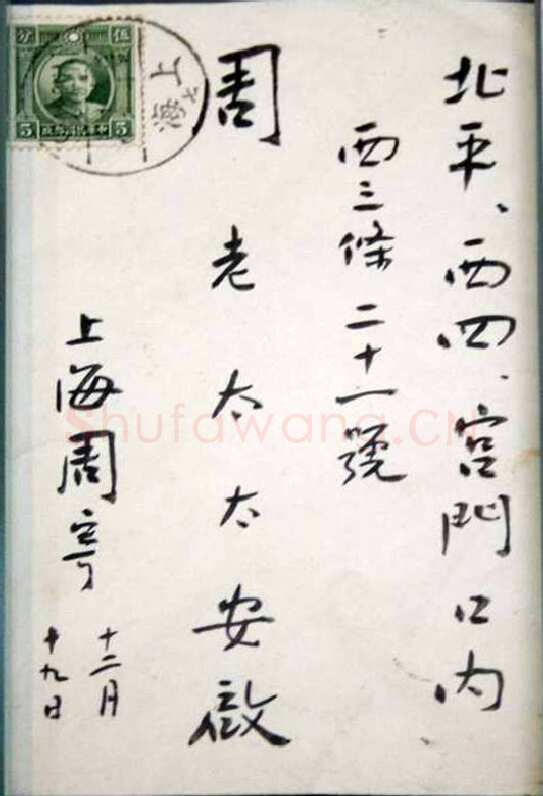 北平、西四、宮門口內
西三條二十一號
周老太太安啟
上海周寄
十二月
十九日
伍 分
5 5
上海
Shufawang.CN